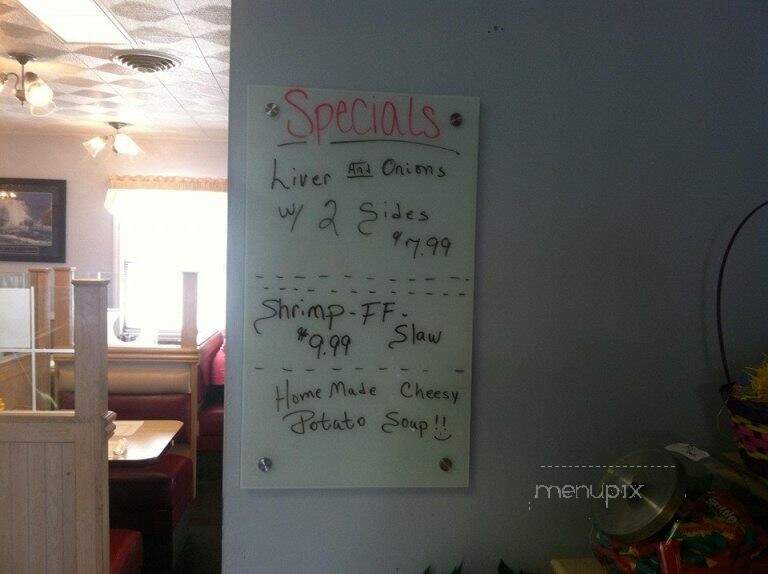 Specials
Liver And Onions
W/ 2 Sides
$7.99
Shrimp-FF-
$9.99 Slaw
HomeMade Cheesy
Potato Soup!!
menupix